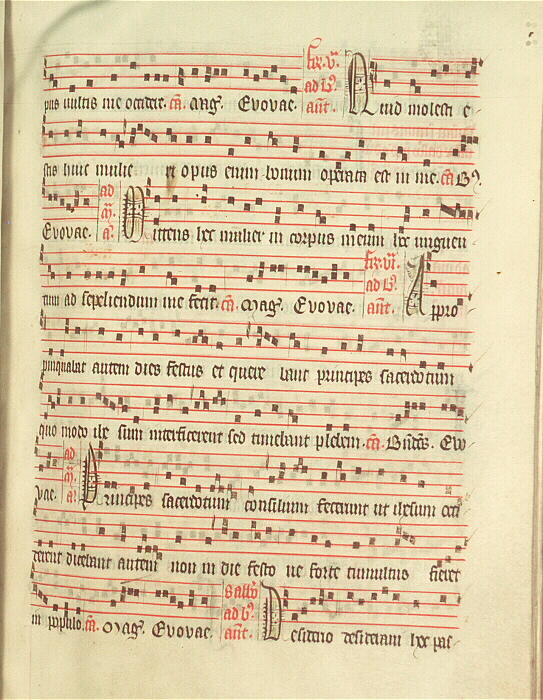 fer. v.
ad B9.
ant.
multis me occidere. ca. Mag. Evovae. Quid molesti e
stis huic mulie ri opus enim bonum operata est in me. ca B9.
Evovae. ad m. a. Mittens hec mulier in corpus meum hoc unguen
tum ad sepeliendum me fecit. ca. Mag. Evovae. fer. vi. ad B9. ant. Appro
pinquabat autem dies festus et quere bant principes sacerdotum
quo modo ihm interficerent sed timebant plebem. ca. Evo
vae. ad m. a. Principes sacerdotum consilium fecerunt ut ihesum occi
derent dicebant autem non in die festo ne forte tumultus fieret
in populo. ca. Mag. Evovae. Sabbo ad b9. ant. Desiderio desideravi hoc pas